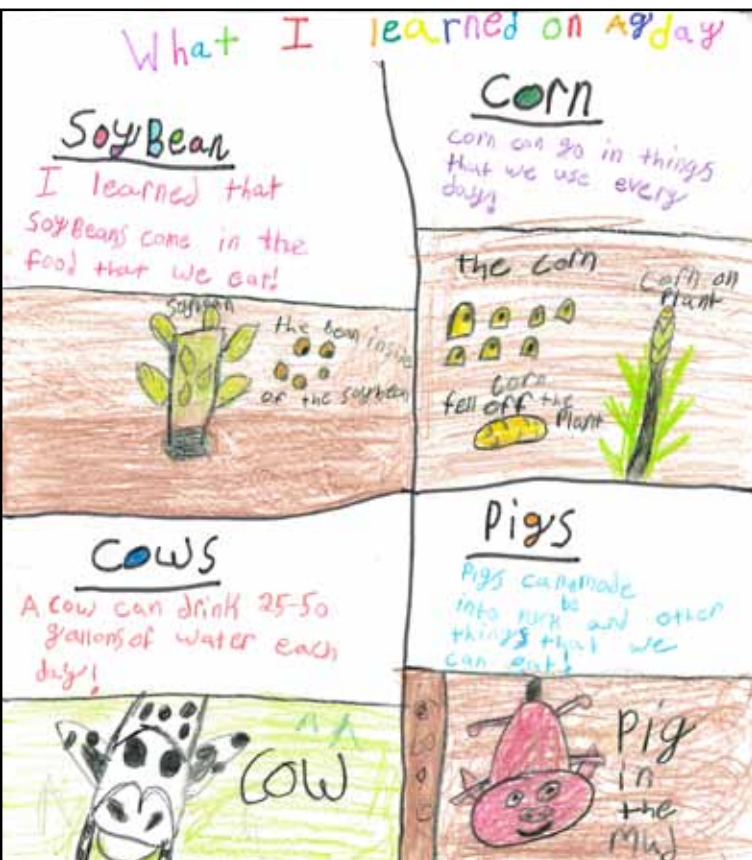 What I learned on Agday
SoyBean
I learned that
SoyBeans come in the
food that we eat!
soybean
the bean inside
of the soybean
Corn
corn can go in things
that we use every
day!
the corn
corn on
Plant
corn
fell off the
Plant
Cows
A cow can drink 25-50
gallons of water each
day!
COW
Pigs
Pigs can made
be
into and other
things that we
can eat!
Pig
in
the
Mud